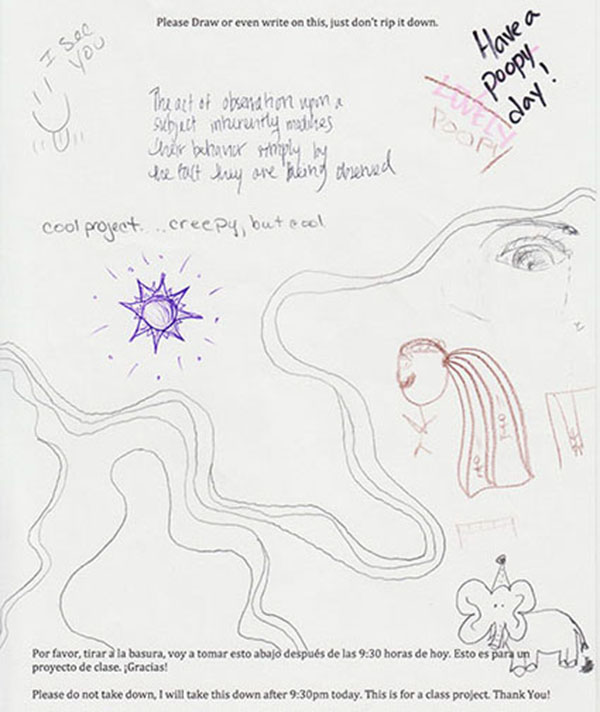 Please Draw or even write on this, just don't rip it down.
I see
YOU
Have a
poopy
day!
LOVELY
POOPY
The act of observation upon a
subject inherently modifies
their behavior simply by
the fact they are being observed
cool project... creepy, but cool
Por favor, tirar a la basura, voy a tomar esto abajo después de las 9:30 horas de hoy. Esto es para un
proyecto de clase. ¡Gracias!
Please do not take down, I will take this down after 9:30pm today. This is for a class project. Thank You!